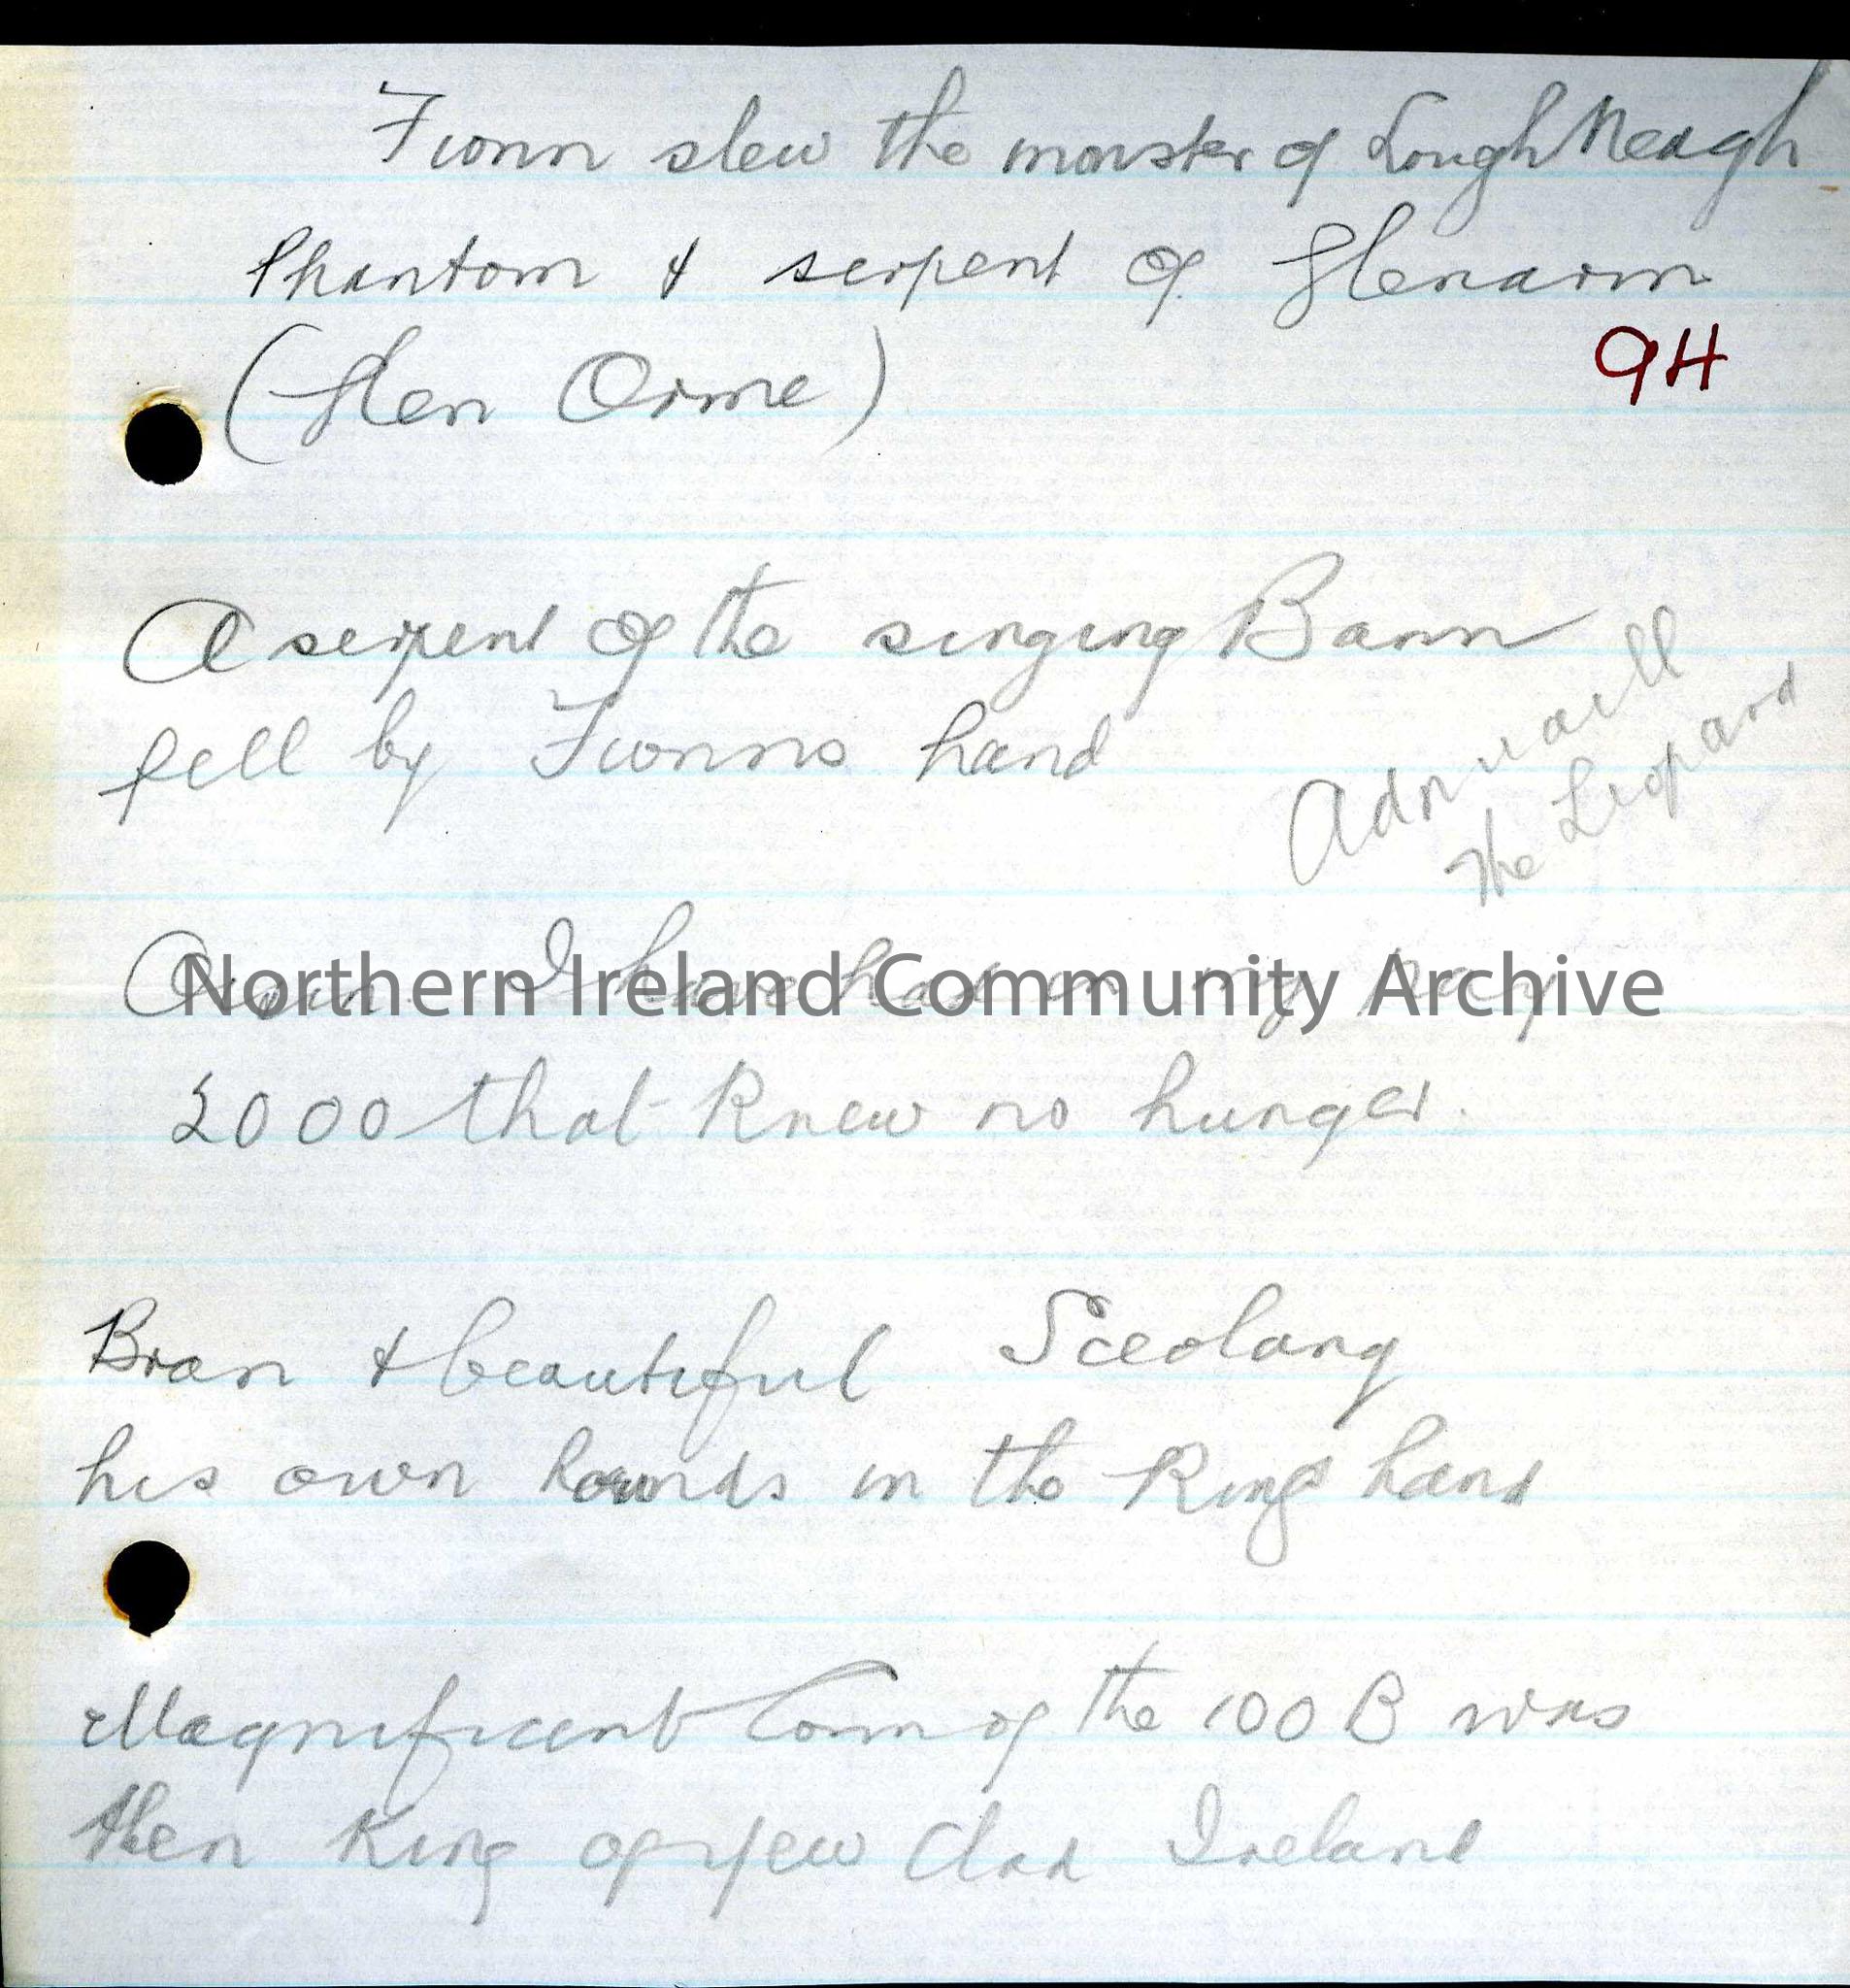 Fionn slew the monster of Lough Neagh
Phantom & serpent of Glenarm
(Glen Orme)
9H
A serpent of the singing Bann
fell by Fionns hand
Adnuaill
the Leopard
I have had in my pay
Northern Ireland Community Archive
2000 that knew no hunger.
Bran & beautiful Sceolang
his own hounds in the Kings hand
Magnificent Conn of the 100 B was
then King of yew clad Ireland